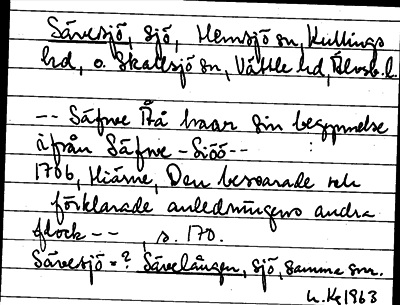 Sävesjö, sjö, Hemsjö sn, Kullings
hd, o. Skallsjö sn, Vättle hd, Älvsb. l.
-- Säfwe Åå haar sin begynnelse
ifrån Säfwe-Siöö--
1706, Hiärne, Den besvarade och
förklarade anledningens andra
flock -- , s. 170.
Sävesjö = ? Sävelången, sjö, samma snr.
1963